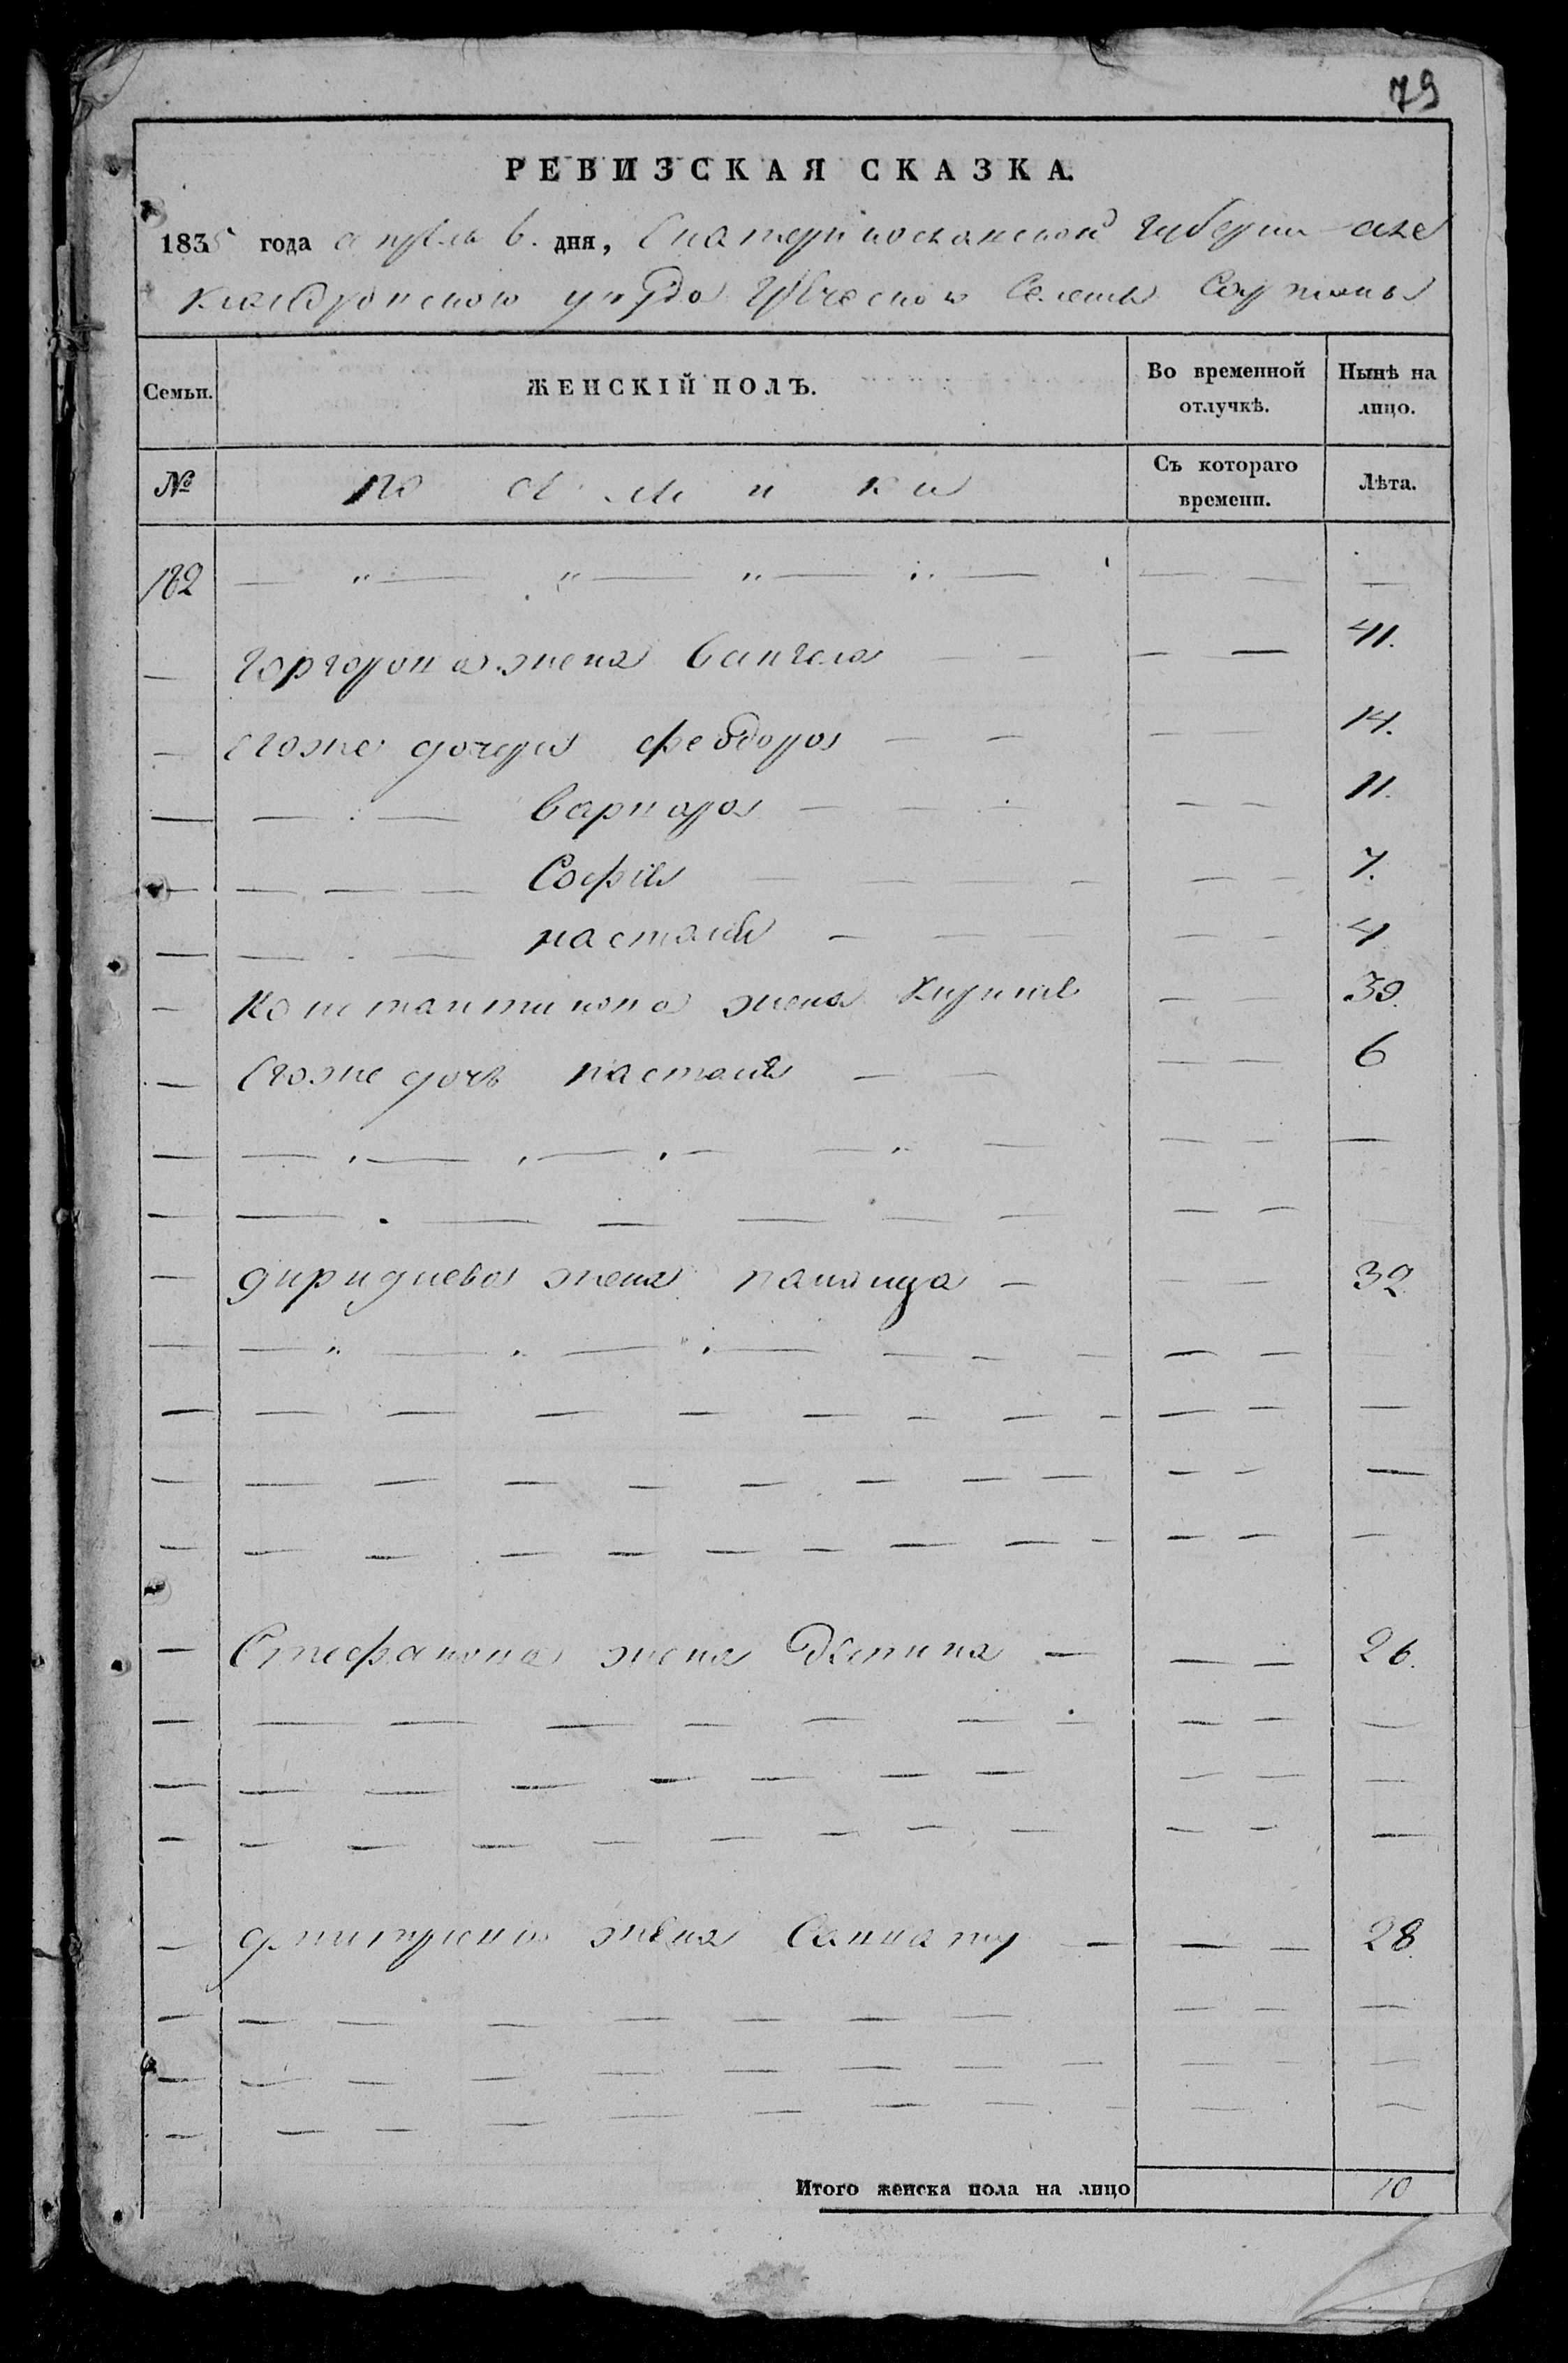 79
РЕВИЗСКАЯ СКАЗКА.
1835 года апреля 6. дня, Екатеринославской Губернии Але
ксандровского уезда Греческой Селения Сартаны
Семьи.
ЖЕНСКІЙ ПОЛЪ.
Во временной отлучкѣ.
Нынѣ на лицо.
№
Съ котораго времени.
Лѣта.
182
жена Вангела 41.
Егоже дочеря феодора 14.
Варвара 11.
Софiя 7.
настасiя 4
Константинова жена 39.
Егоже дочь настасiя 6
жена 32
Стефанова жена 26.
Дмитриева жена 28.
Итого женска пола на лицо 10